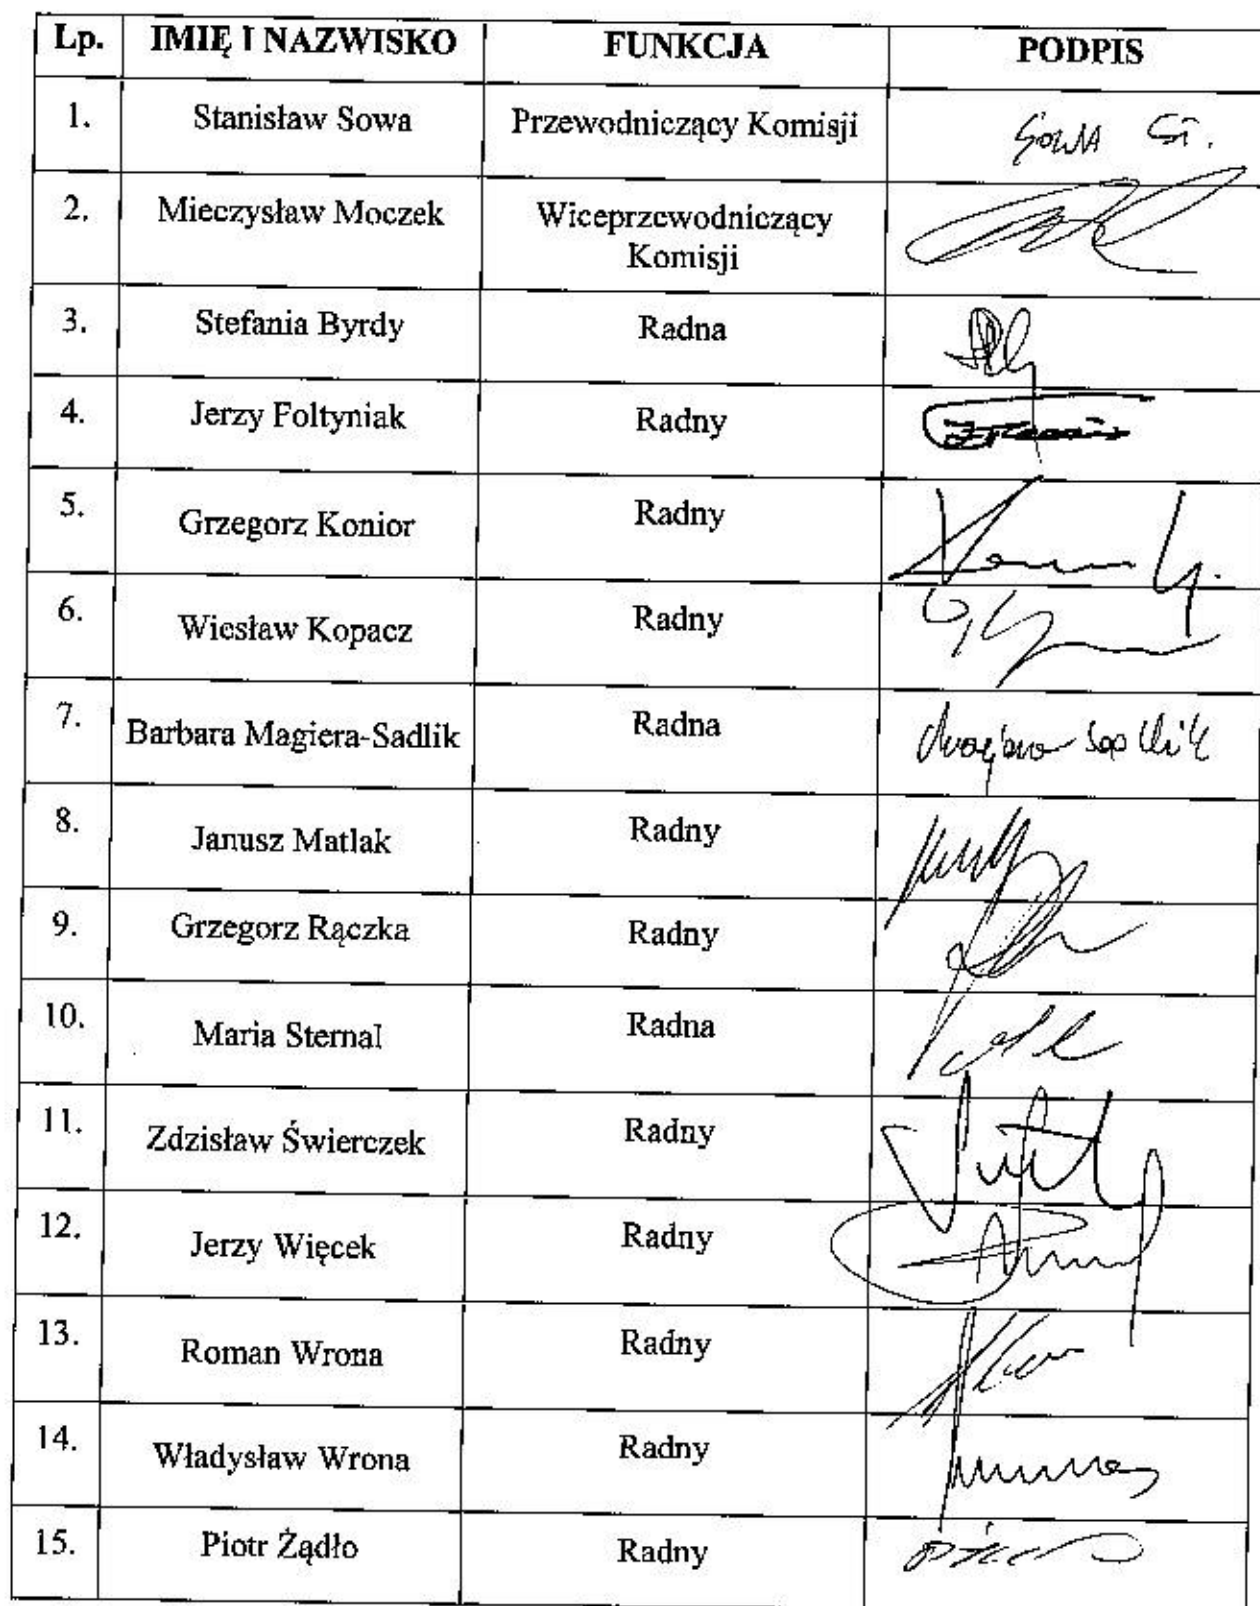 Lp. IMIĘ I NAZWISKO FUNKCJA PODPIS
1. Stanisław Sowa Przewodniczący Komisji Sowa St.
2. Mieczysław Moczek Wiceprzewodniczący
Komisji
3. Stefania Byrdy Radna
4. Jerzy Foltyniak Radny
5. Grzegorz Konior Radny
6. Wiesław Kopacz Radny
7. Barbara Magiera-Sadlik Radna
8. Janusz Matlak Radny
9. Grzegorz Rączka Radny
10. Maria Sternal Radna
11. Zdzisław Świerczek Radny
12. Jerzy Więcek Radny
13. Roman Wrona Radny
14. Władysław Wrona Radny
15. Piotr Żądło Radny